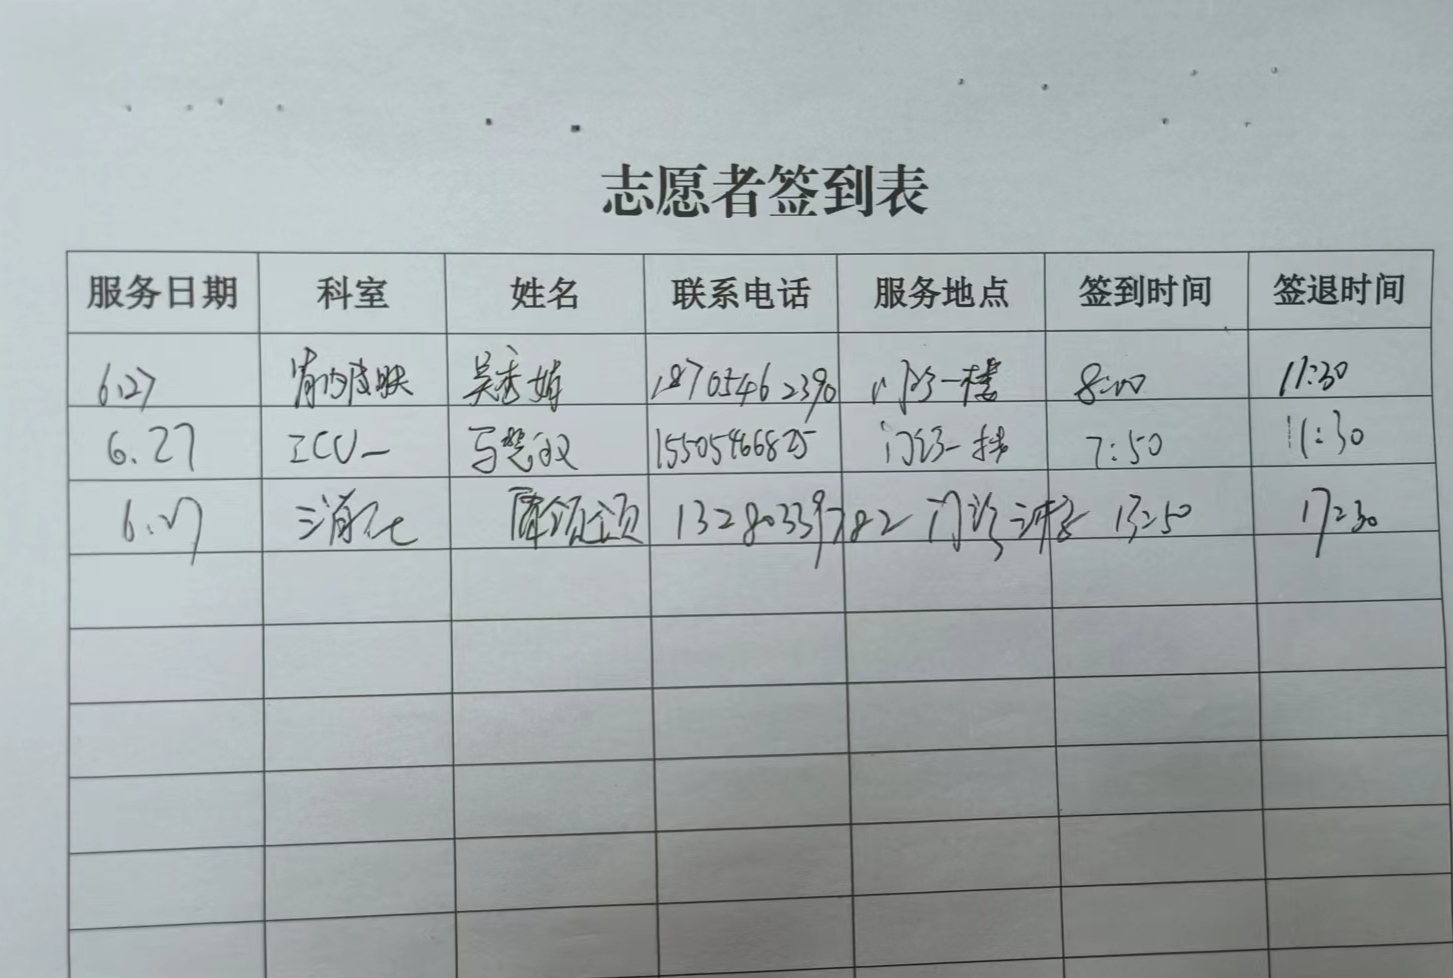 志愿者签到表
服务日期 科室 姓名 联系电话 服务地点 签到时间 签退时间
6.27 吴秀娟 18705462390 门诊一楼 8:00 11:30
6.27 ICU一 15505466825 门诊一楼 7:50 11:30
6.27 消化 13280339782 门诊三楼 13:50 17:30